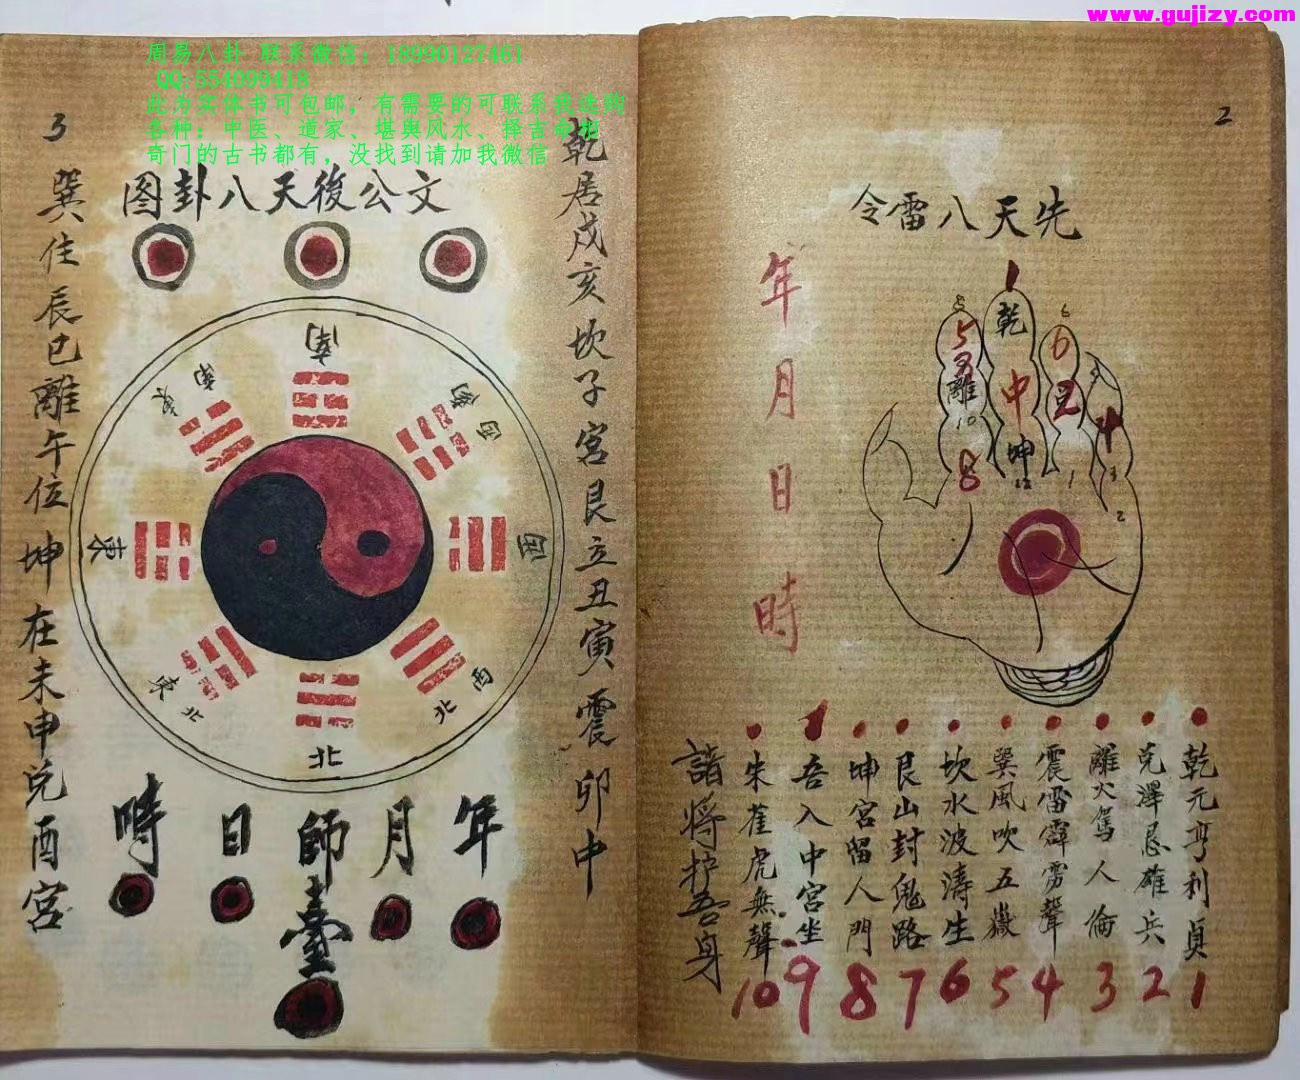 www.gujizy.com
周易八卦 联系微信：18990127461
QQ:554099418
此为实体书可包邮，有需要的可联系我选购
各种：中医、道家、堪舆风水、择吉命相
奇门的古书都有，没找到请加我微信
2
先天八雷令
年月日時
1
乾
中
坤
12
5
5
3
離
10
8
6
6
2
1
4
3
2
乾元亨利貞
1
兑澤忌雄兵
2
離火駕人倫
3
震雷霹雳聲
4
巽風吹五嶽
5
坎水波濤生
6
艮山封鬼路
7
坤宮留人門
8
吾入中宮坐
9
朱雀虎無聲
10
諸將护吾身
3
乾居戍亥坎子宮艮立丑寅震卯中
文公後天八卦图
南
東南
西南
東
西
東北
西北
北
年
月
師臺
日
時
巽住辰巳離午位坤在未申兑酉宮